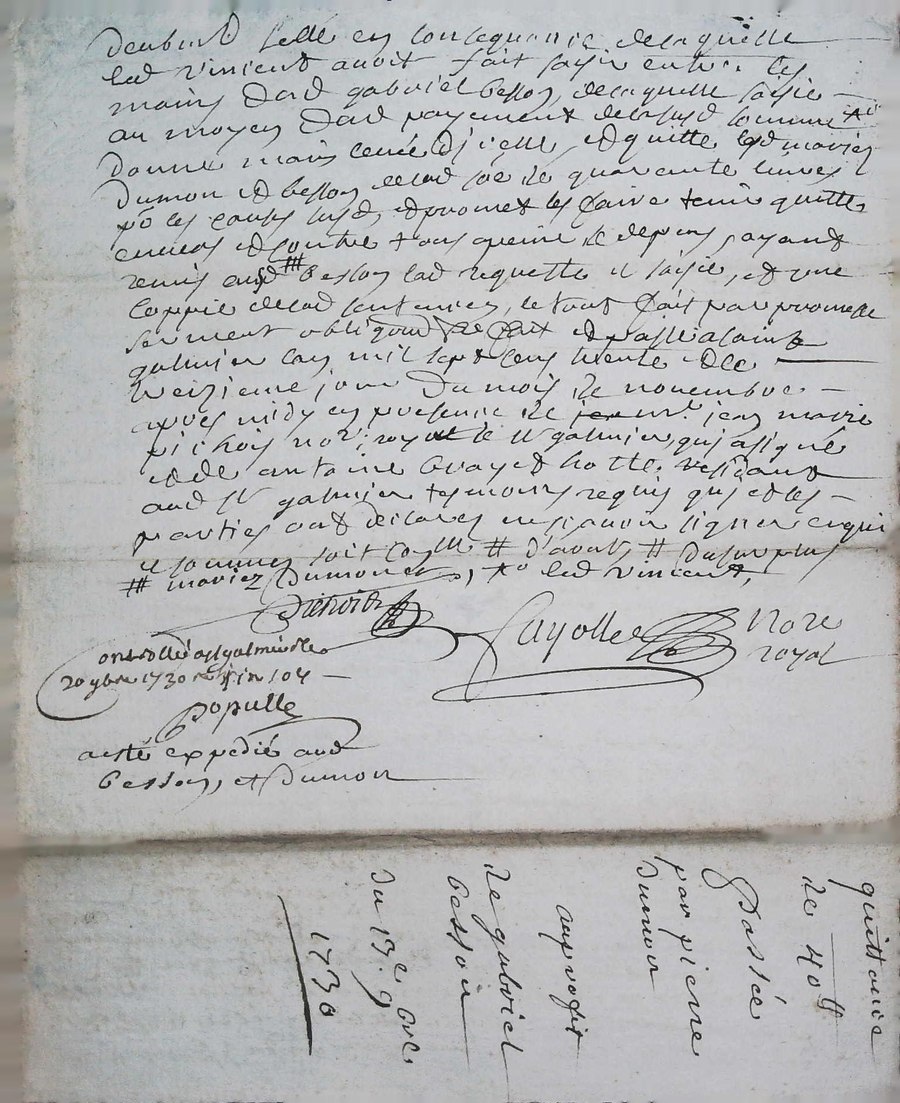 en consequance delaquelle
led vincent avoit fait saisir entre les
mains dud gabriel besson, delaquelle saisie
au moyen dud payement delasusd somme
donne main levée d'icelle, et quitte lesd mariez
Dumon et besson delad soe de quarente livres
po les causes susd, et promet les faire tenir quitte
envers et contre tous a peine de depens, ayant
remis aud besson lad requette et saisie, et une
coppie delad sentence, le tout fait par promesse
serment obligaon fait et passé a saint
galmier lan mil sept cens trente et le
treizieme jour du mois de novembre
apres midy en presence de mr jean marie
pichois nore royal de st galmier, qui a signé
et de antoine hotte, residant
aud st galmier tesmoins requis qui et les
parties ont declarez ne scavoir signer enquis
et sommez soit # d'avoir # du surplus
# mariez Dumon et, led vincent,
Fayolle Nore
royal
controllé a st galmier le
20 9bre 1730
Populle
a esté expedié aud
besson, et Dumon
quittance
de 40ll
Passée
par pierre
Dumon
au profit
de gabriel
besson
du 13e 9bre
1730